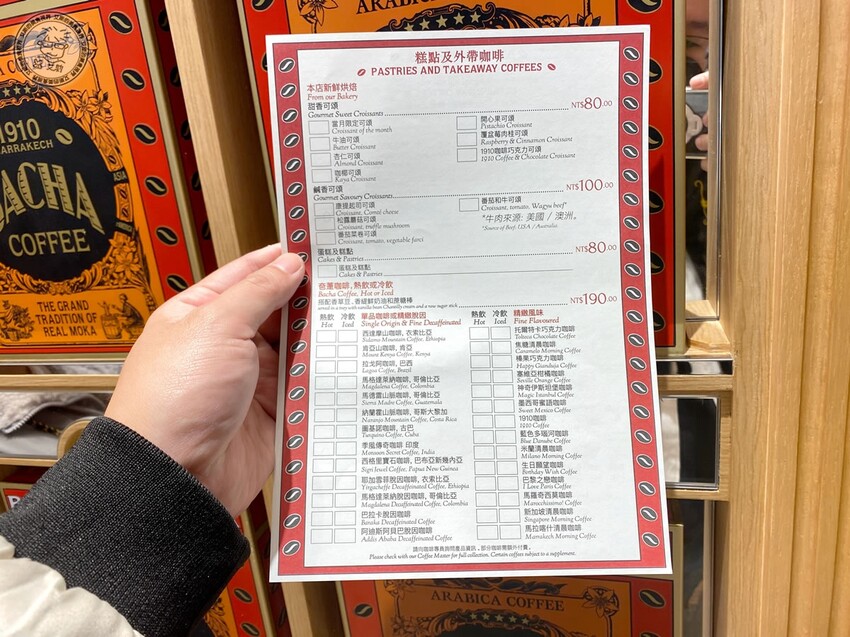 ARABICA COFFEE
1910
MARRAKECH
BACHA
COFFEE
ASIA
THE GRAND
TRADITION OF
REAL MOKA
糕點及外帶咖啡
PASTRIES AND TAKEAWAY COFFEES
本店新鮮烘焙
From our Bakery
甜香可頌
Gourmet Sweet Croissants NT$80.00
當月限定可頌
Croissant of the month
牛油可頌
Butter Croissant
杏仁可頌
Almond Croissant
咖椰可頌
Kaya Croissant
開心果可頌
Pistachio Croissant
覆盆莓肉桂可頌
Raspberry & Cinnamon Croissant
1910咖啡巧克力可頌
1910 Coffee & Chocolate Croissant
鹹香可頌
Gourmet Savoury Croissants NT$100.00
康提起司可頌
Croissant, Comté cheese
松露蘑菇可頌
Croissant, truffle mushroom
番茄菜卷可頌
Croissant, tomato, vegetable farci
番茄和牛可頌
Croissant, tomato, Wagyu beef*
*牛肉來源: 美國 / 澳洲。
*Source of Beef: USA / Australia
蛋糕及糕點
Cakes & Pastries NT$80.00
蛋糕及糕點
Cakes & Pastries
壹萬咖啡, 熱飲或冷飲
Bacha Coffee, Hot or Iced
搭配香草豆, 香緹鮮奶油和蔗糖棒 NT$190.00
served in a tray with vanilla bean Chantilly cream and a raw sugar stick
熱飲 冷飲 單品咖啡或精緻脫因
Hot Iced Single Origin & Fine Decaffeinated
西達摩山咖啡, 衣索比亞
Sidamo Mountain Coffee, Ethiopia
肯亞山咖啡, 肯亞
Mount Kenya Coffee, Kenya
拉戈阿咖啡, 巴西
Lagoa Coffee, Brazil
馬格達萊納咖啡, 哥倫比亞
Magdalena Coffee, Colombia
馬德雷山脈咖啡, 哥倫比亞
Sierra Madre Coffee, Guatemala
納蘭霍山脈咖啡, 哥斯大黎加
Naranjo Mountain Coffee, Costa Rica
圖基諾咖啡, 古巴
Turquino Coffee, Cuba
季風傳奇咖啡 印度
Monsoon Secret Coffee, India
西格里寶石咖啡, 巴布亞新幾內亞
Sigri Jewel Coffee, Papua New Guinea
耶加雪菲脫因咖啡, 衣索比亞
Yirgacheffe Decaffeinated Coffee, Ethiopia
馬格達萊納脫因咖啡, 哥倫比亞
Magdalena Decaffeinated Coffee, Colombia
巴拉卡脫因咖啡
Baraka Decaffeinated Coffee
阿迪斯阿貝巴脫因咖啡
Addis Ababa Decaffeinated Coffee
熱飲 冷飲 精緻風味
Hot Iced Fine Flavoured
托爾特卡巧克力咖啡
Tolteca Chocolate Coffee
焦糖清晨咖啡
Caramelo Morning Coffee
榛果巧克力咖啡
Happy Gianduja Coffee
塞維亞柑橘咖啡
Seville Orange Coffee
神奇伊斯坦堡咖啡
Magic Istanbul Coffee
墨西哥蜜語咖啡
Sweet Mexico Coffee
1910咖啡
1910 Coffee
藍色多瑙河咖啡
Blue Danube Coffee
米蘭清晨咖啡
Milano Morning Coffee
生日願望咖啡
Birthday Wish Coffee
巴黎之戀咖啡
I Love Paris Coffee
馬羅奇西莫咖啡
Marocchissimo! Coffee
新加坡清晨咖啡
Singapore Morning Coffee
馬拉喀什清晨咖啡
Marrakech Morning Coffee
請向咖啡專員詢問產品資訊。部份咖啡需額外付費。
Please check with our Coffee Master for full collection. Certain coffees subject to a supplement.
ARABICA COFFEE